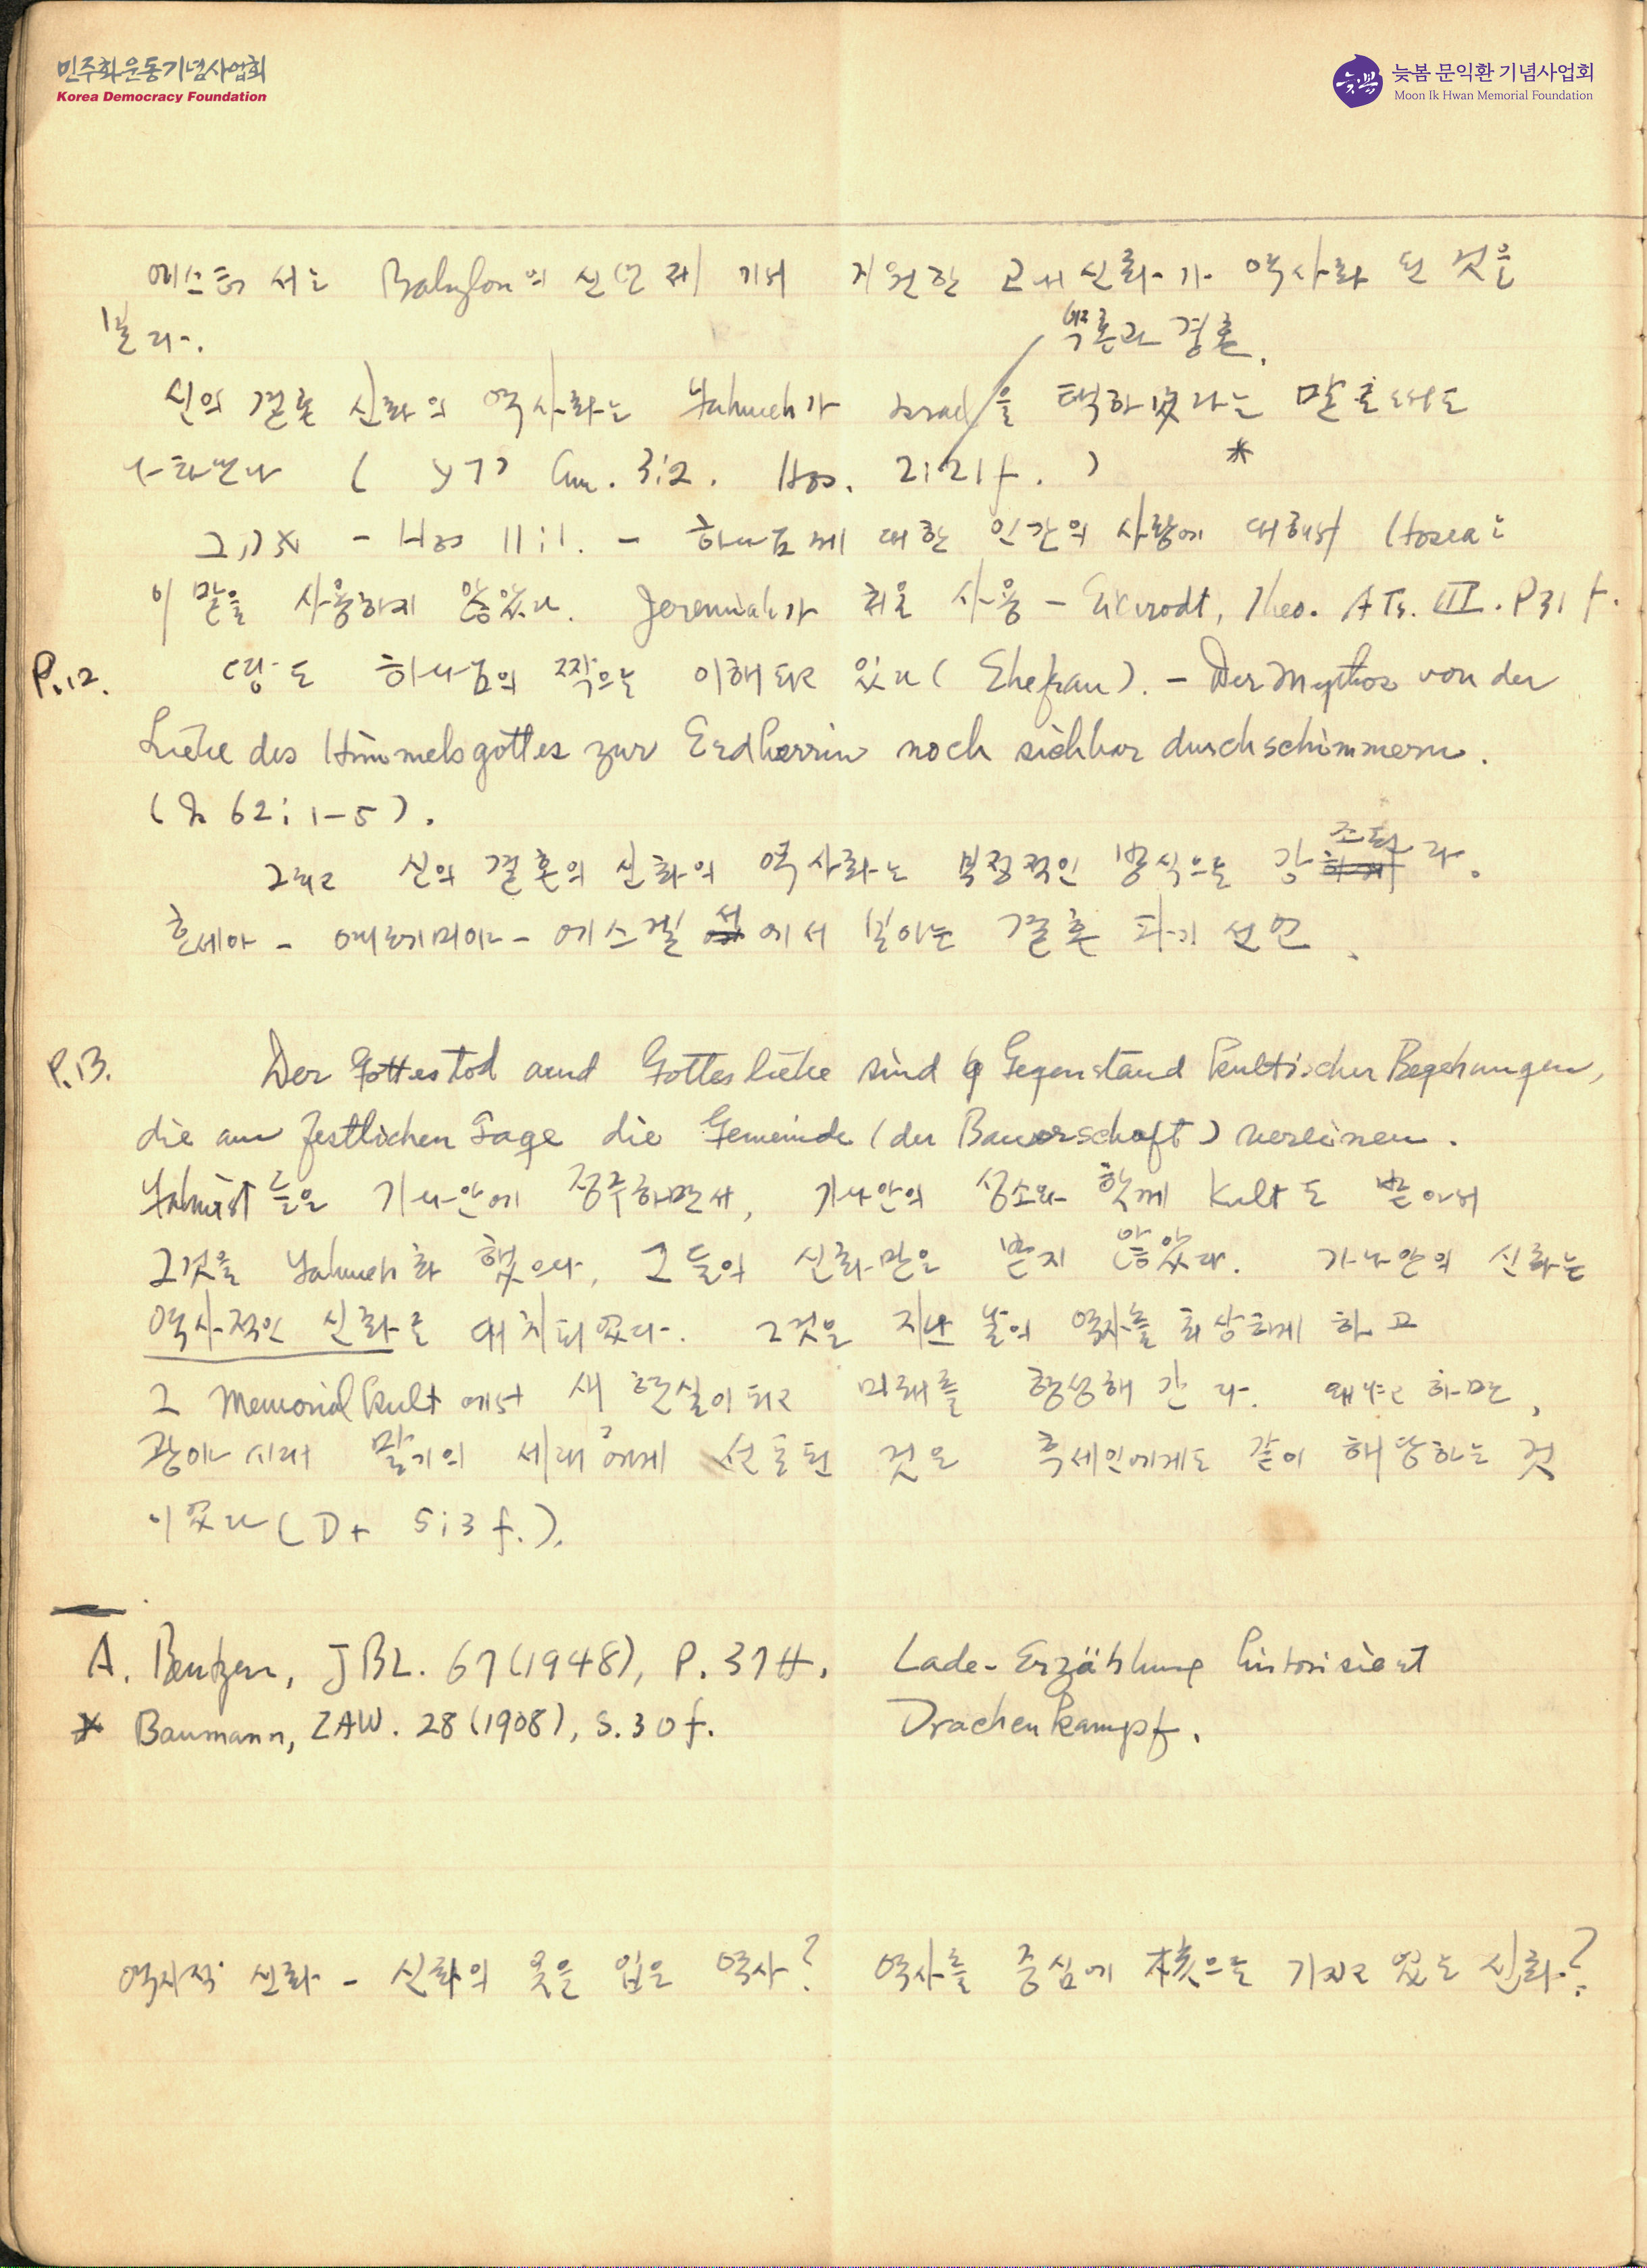 민주화운동기념사업회
Korea Democracy Foundation
늦봄 문익환 기념사업회
Moon Ik Hwan Memorial Foundation
에스더서는 Babylon의 신년제 기원한 고대신화가 역사화 된 것을
본다.
약혼과 결혼.
신의 결혼 신화의 역사화는 Yahweh가 Israel을 택하였다는 말로써도
나타난다 ( ידע Am. 3:2. Hos. 2:21f. ) *
- Hos 11:1. - 하나님께 대한 인간의 사랑에 대해서 Hosea는
이 말을 사용하지 않았다. Jeremiah가 처음 사용 - Eichrodt, Theo. ATs. III. P31f.
P.12. 땅도 하나님의 짝으로 이해되고 있다 (Ehefrau). - Der Mythos von der
Liebe des Himmelsgottes zur Erdherrin noch sichbar durchschimmern.
( 62:1-5).
그리고 신의 결혼의 신화의 역사화는 부정적인 방식으로 강조된다.
호세아 - 예레미야 - 에스겔서에서 보이는 결혼 파기 선언.
P.13. Der Gottestod und Gottesliebe sind Gegenstand kultischer Begehungen,
die am festlichen Tage die Gemeinde (der Bauerschaft) vereinen.
Yahwist들은 가나안에 정주하면서, 가나안의 성소와 함께 Kult도 받아서
그것을 Yahweh화 했으나, 그들의 신화만은 받지 않았다. 가나안의 신화는
역사적인 신화로 대치되었다. 그것은 지난 날의 역사를 회상하게 하고
그 Memorial Kult에서 새 현실이 되고 미래를 형성해 간다. 왜냐고 하면,
광야시대 말기의 세대에게 선포된 것은 후세인에게도 같이 해당하는 것
이었다 (Dt 5:3 f.).
A. Bentzen, JBL. 67 (1948), P. 37ff. Lade-Erzählung historisiert
* Baumann, ZAW. 28 (1908), S. 30f. Drachenkampf.
역사적 신화 - 신화의 옷을 입은 역사? 역사를 중심에 核으로 가지고 있는 신화?